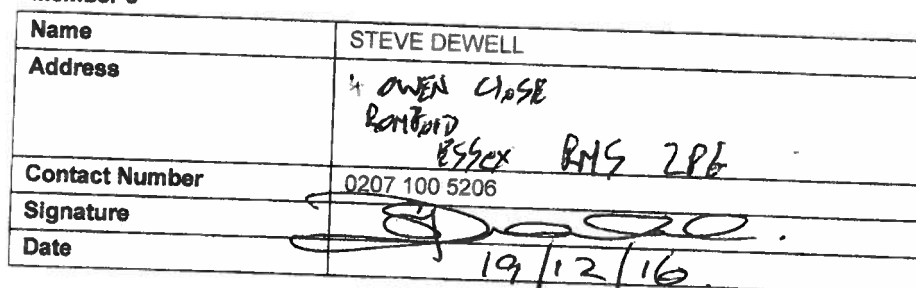 Name STEVE DEWELL
Address 4 OWEN CLOSE
ROMFORD
ESSEX RM5 2PG
Contact Number 0207 100 5206
Signature
Date 19/12/16